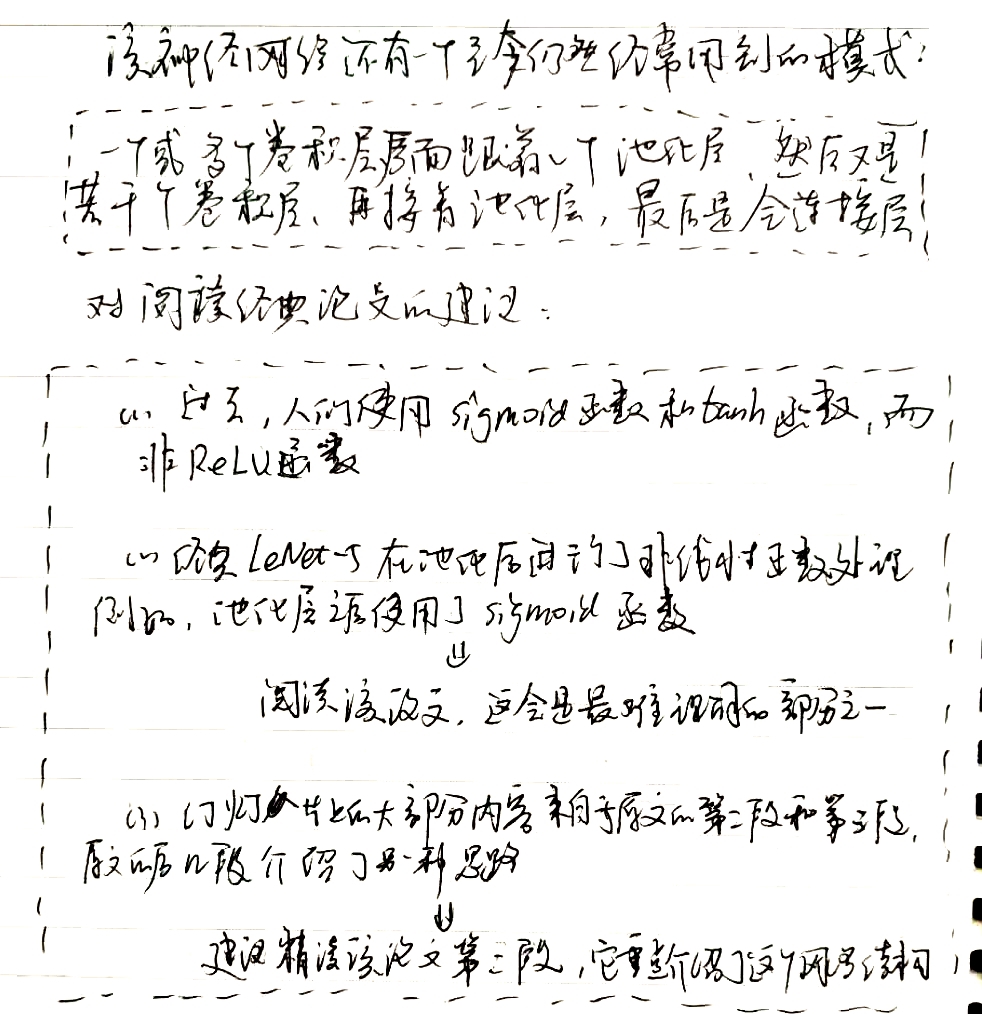 该神经网络还有一个至今仍然经常用到的模式：
一个或多个卷积层后面跟着一个池化层，然后又是
若干个卷积层、再接着池化层，最后是全连接层
对阅读经典论文的建议：
(1) 过去，人们使用sigmoid函数和tanh函数，而
非ReLU函数
(2) 经典LeNet-5在池化后进行了非线性函数处理
例如，池化层之后使用了sigmoid函数
⇓
阅读该论文，这会是最难理解的部分之一
(3) 幻灯片上的大部分内容来自于原文的第二段和第三段，
原文的后几段介绍了另一种思路
⇓
建议精读该论文第二段，它重点介绍了这个网络结构